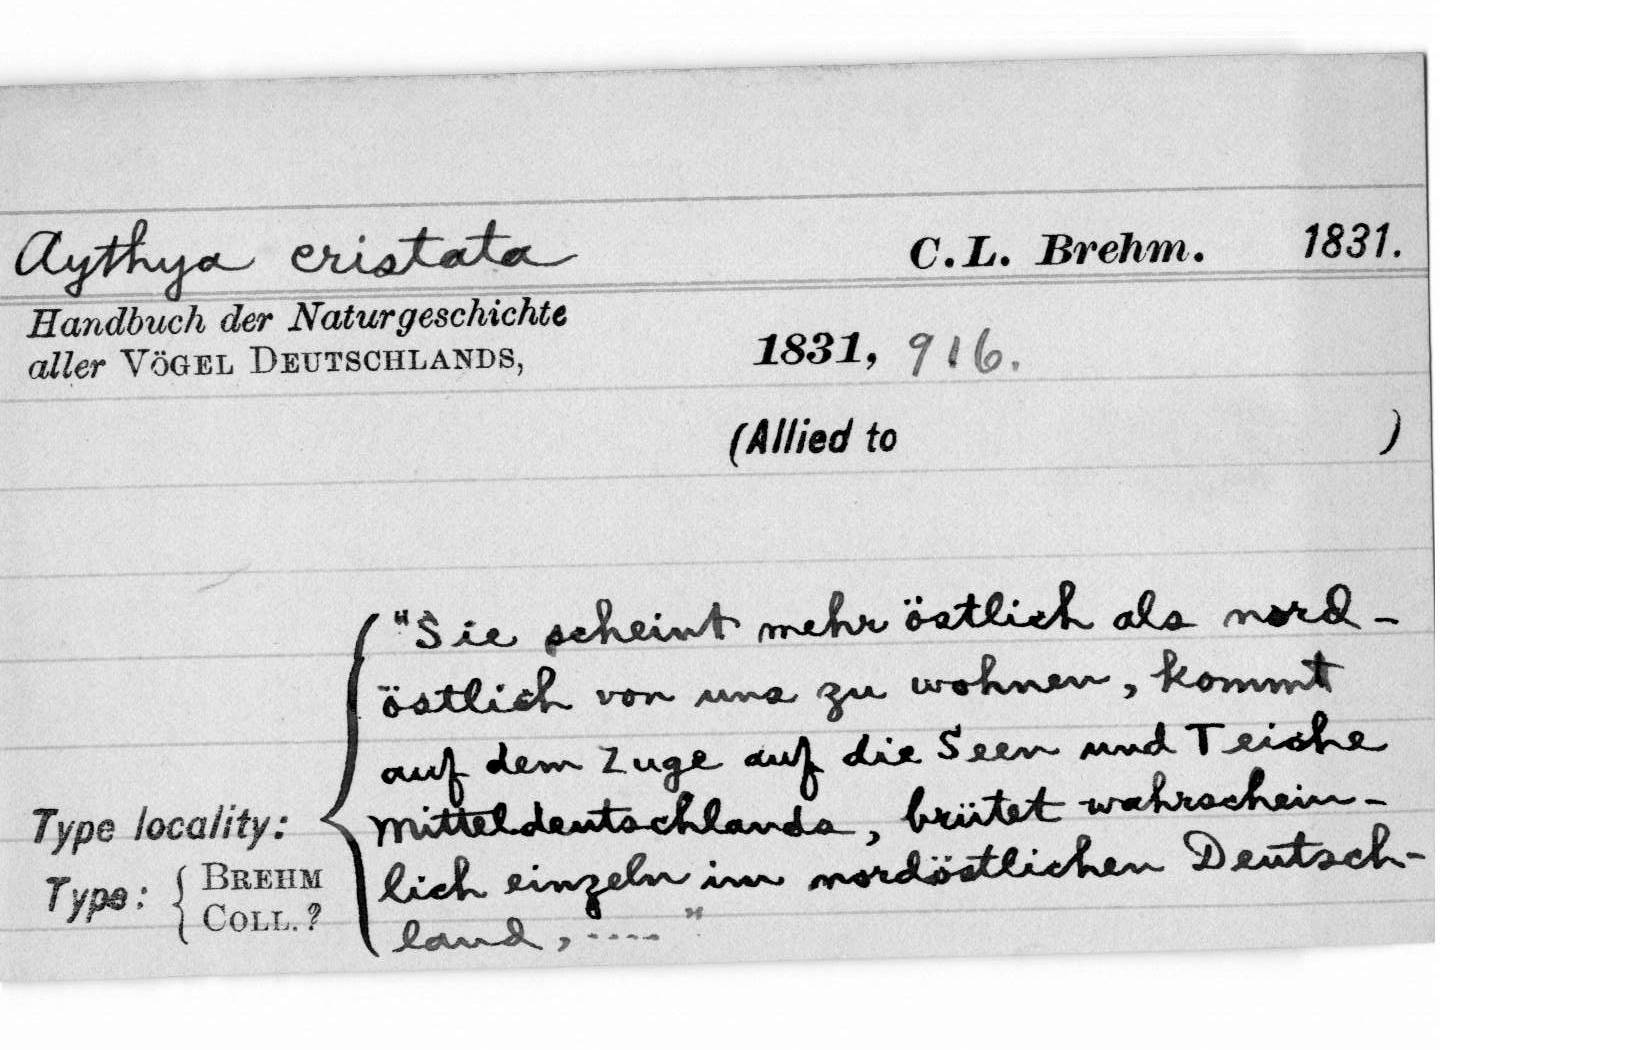 Aythya cristata C.L. Brehm. 1831.
Handbuch der Naturgeschichte
aller VÖGEL DEUTSCHLANDS, 1831, 916.
(Allied to )
"Sie scheint mehr östlich als nord-
östlich von uns zu wohnen, kommt
auf dem Zuge auf die Seen und Teiche
Type locality: Mitteldeutschlands, brütet wahrschein-
Type: { BREHM COLL. ? lich einzeln im nordöstlichen Deutsch-
land, ....."